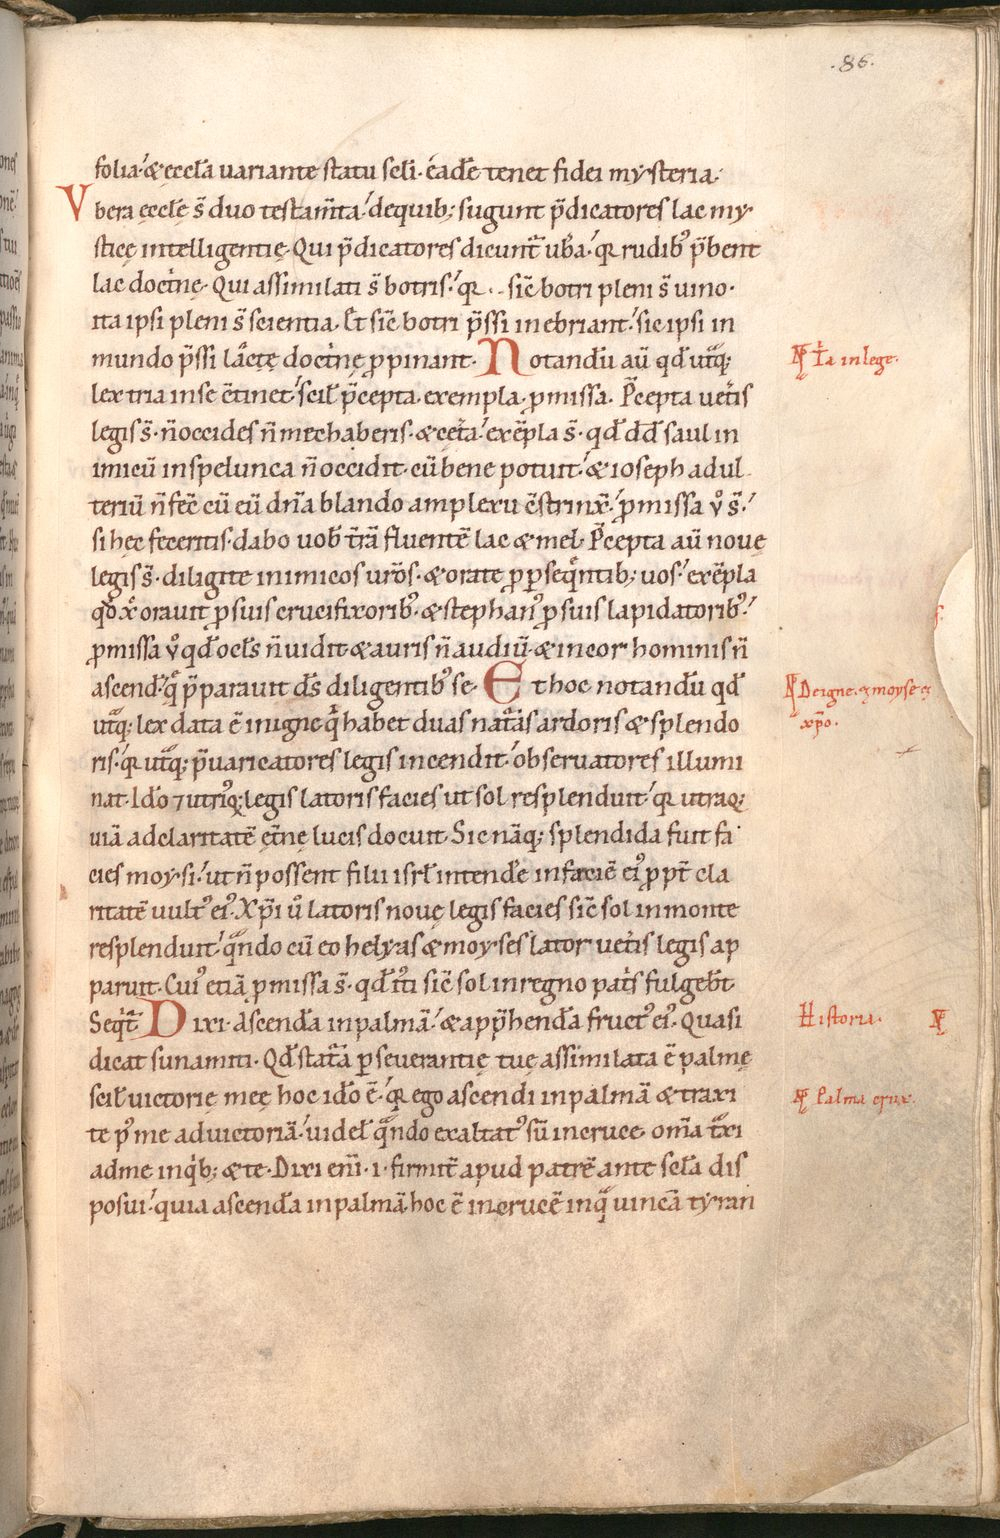 .86.
folia·́ & ęccl̄a uariante statu scl̄i· eād̄e tenet fidei mysteria·
Vbera ęccl̄ę s̄ duo testam̄ta·́ de quib; sugunt p̄dicatores lac my
sticę intelligentię· Qui p̄dicatores dicunt̄ ub̄a·́ qr rudib᷒ p̄bent
lac doct̍nę· Qui assimilati s̄ botris·́ qr sic̄ botri pleni s̄ uino·
ita ipsi pleni s̄ scientia· Et sic̄ botri p̄ssi inebriant·́ sic ipsi in
mundo p̄ssi lācte doct̍nę ꝓpinant· Notand̄u aū qd̄ utq̄;
lex tria in se c̄tinet·́ scil̄ p̄cepta· exempla· ꝓmissa· P̄cepta uet̍is
legis s̄· n̄ occides n̄ mechaberis· & cet̄a·́ exēpla s̄· qd̄ dd̄ saul in
imicū in spelunca n̄ occidit· cū bene potuit·́ & ioseph adul
teriū n̄ fec̄ cū eū dn̄a blando amplexu c̄strinx̄·́ ꝓmissa v̊ s̄·́
si hęc feceritis· dabo uob̄ t̄rā fluentē lac & mel· P̄cepta aū nouę
legis s̄· diligite inimicos urōs· & orate ꝓ ꝑseq̄ntib; uos·́ exēpla
qd̄ x̄ orauit ꝓ suis crucifixorib᷒· & stephan᷒ ꝓ suis lapidatorib᷒·́
ꝓmissa v̊ qd̄ ocl̄s n̄ uidit & auris n̄ audiū· & in cor hominis n̄
ascend̄·́ q̄ p̄parauit d̄s diligentib᷒ se· Et hoc notand̄u qd̄
utq̄; lex data ē in igne q̍ habet duas nat̄as ardoris & splendo
ris·́ qr utq̄; p̄uaricatores legis incendit·́ obseruatores illumi
nat· Id̄o ⁊ utri᷒q; legis latoris facies ut sol resplenduit·́ qr utraq;
uiā ad claritatē ęt̄nę lucis docuit· Sic nāq; splendida fuit fa
cies moysi·́ ut n̄ possent filii isrl̄ intend̄e in faciē ei᷒ ꝓpt̄ cla
ritatē uult᷒ ei᷒· Xp̄i ū latoris nouę legis facies sic̄ sol in monte
resplenduit·́ qn̄do cū eo helyas & moyses lator uet̍is legis ap
paruit· Cui᷒ etiā ꝓmissa s̄· qd̄ i᷒ti sic̄ sol in regno pat̍s fulgeb̄t·
Seqt̄ Dixi· Ascend̄a in palmā·́ & app̄hend̄a fruct᷒ ei᷒· Quasi
dicat sunamiti· Qd̄ stat̄a ꝑseuerantię tuę assimilata ē palmę
scil̄ uictorię meę hoc id̄o ē·́ qr ego ascendi in palmā & traxi
te p᷒ me ad uictoriā·́ uidel̄ qn̄do exaltat᷒ sū in cruce· om̄a t̄xi
ad me inq̍b; & te· Dixi eni̅· i· firmit̄ apud patrē ante scl̄a dis
posui·́ quia ascend̄a in palmā· hoc ē in crucē in q̄ uincā tyran
It̄a in lege·
De igne· ⁊ moyse ⁊
xp̄o·
Historia·
Palma crux·